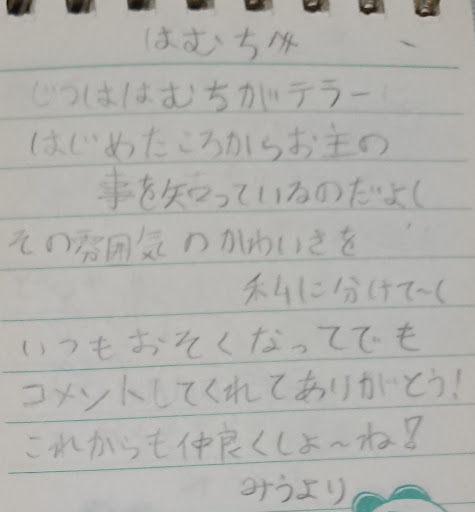 はむちゃへ
じつははむちがテラー
はじめたころからお主の
事を知っているのだよ(
その雰囲気のかわいさを
私に分けて〜(
いつもおそくなってでも
コメントしてくれてありがとう!
これからも仲良くしよ〜ね!
みうより